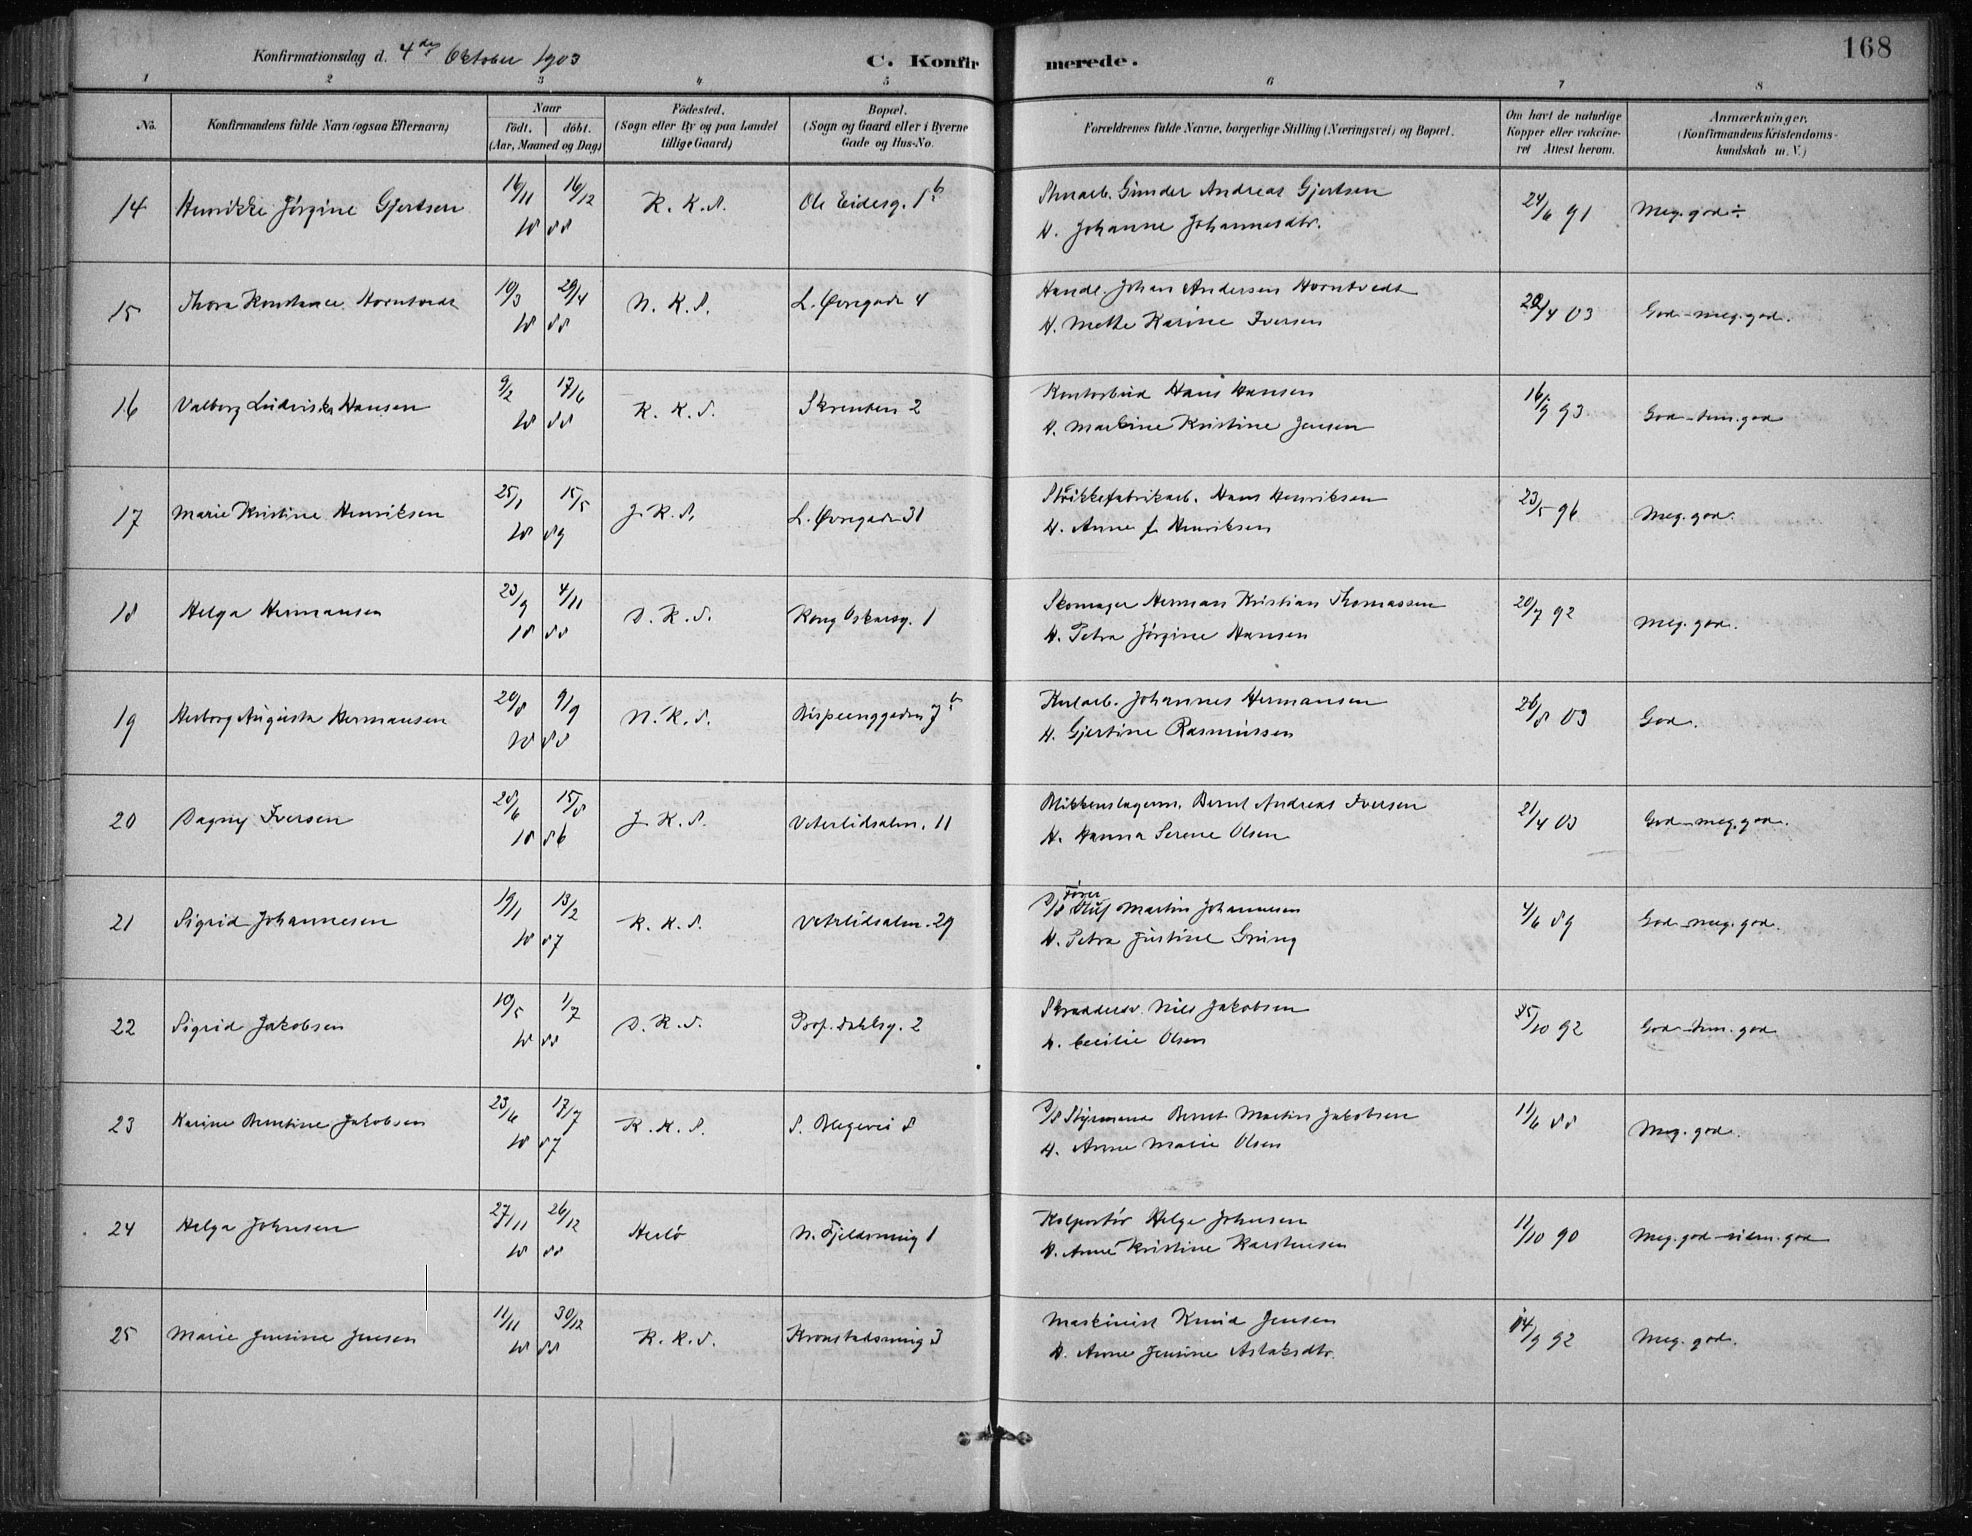 168
Konfirmationsdag d. 4de Oktober 1903
C. Konfirmerede.
1 2 3 4 5 6 7 8
No.
Konfirmandens fulde Navn (ogsaa Efternavn)
Naar
födt. döbt.
(Aar, Maaned og Dag)
Födested.
(Sogn eller By og paa Landet
tillige Gaard)
Bopæl.
(Sogn og Gaard eller i Byerne
Gade og Hus-No.
Forældrenes fulde Navne, borgerlige Stilling (Næringsvei) og Bopæl.
Om havt de naturlige
Kopper eller vakcine-
ret Attest herom.
Anmærkninger.
(Konfirmandens Kristendoms-
kundskab m. V.)
14 Henrikke Jörgine Gjertsen 16/11 16/12 18 88 K. K. S. Ole Eidesg. 1b Gunder Andreas Gjertsen 24/6 91 Meg. god ÷
H. Johanne Johannesdtr.
15 Thora Konstance Horntvedt 10/3 29/4 18 88 N. K. S. L. Øvregade 4 Handl. Johan Andersen Horntvedt 22/4 03 God - meg. god.
H. Mette Karine Iversen
16 Valborg Ludviska Hansen 9/2 17/6 18 88 K. K. S. Skrenten 2 Kontorbud Hans Hansen 16/9 93 God - tem. god
H. Martine Kristine Jensen
17 Marie Kristine Henriksen 25/1 15/5 18 89 J. K. S. L. Øvregade 31 Strikkefabrikarb. Hans Henriksen 23/5 96 Meg. god.
H. Anne f. Henriksen
18 Helga Hermansen 23/9 4/11 18 88 D. K. S. Kong Oskarsg. 1 Skomager Herman Kristian Thomassen 20/7 92 Meg. god.
H. Petra Jörgine Hansen
19 Herborg Augusta Hermansen 20/8 9/9 18 88 N. K. S. Bispeenggaden 7b Kularb. Johannes Hermansen 26/8 03 God.
H. Gjertine Rasmussen
20 Dagny Iversen 28/6 15/8 18 86 J. K. S. Veterlidsalm. 11 Blikkenslagerm. Bernt Andreas Iversen 21/4 03 God - meg. god.
H. Hanna Serene Olsen
21 Sigrid Johannesen 19/11 13/2 18 87 K. K. S. Veterlidsalm. 29 D/S Fører Oluf Martin Johannesen 4/6 89 God - meg. god.
H. Petra Justine Grung
22 Sigrid Jakobsen 10/5 1/7 18 88 D. K. S. Prof. Dahlsg. 2 Skrædders. Nils Jakobsen 25/10 92 God - tem. god
H. Cecilie Olsen
23 Karine Berntine Jakobsen 23/6 17/7 18 87 K. K. S. S. Blegevei 8 D/S Styrmand Bernt Martin Jakobsen 11/6 88 Meg. god.
H. Anne Marie Olsen
24 Helga Johnsen 27/11 26/12 18 88 Herlö N. Fjeldsmug 1 Kolportör Helge Johnsen 11/10 90 Meg. god - udm. god
H. Anne Kristine Karstensen
25 Marie Jensine Jensen 11/11 30/12 18 88 K. K. S. Kronstadsmug 3 Maskinist Knud Jensen 14/9 92 Meg. god.
H. Anne Jensine Aslaksdtr.